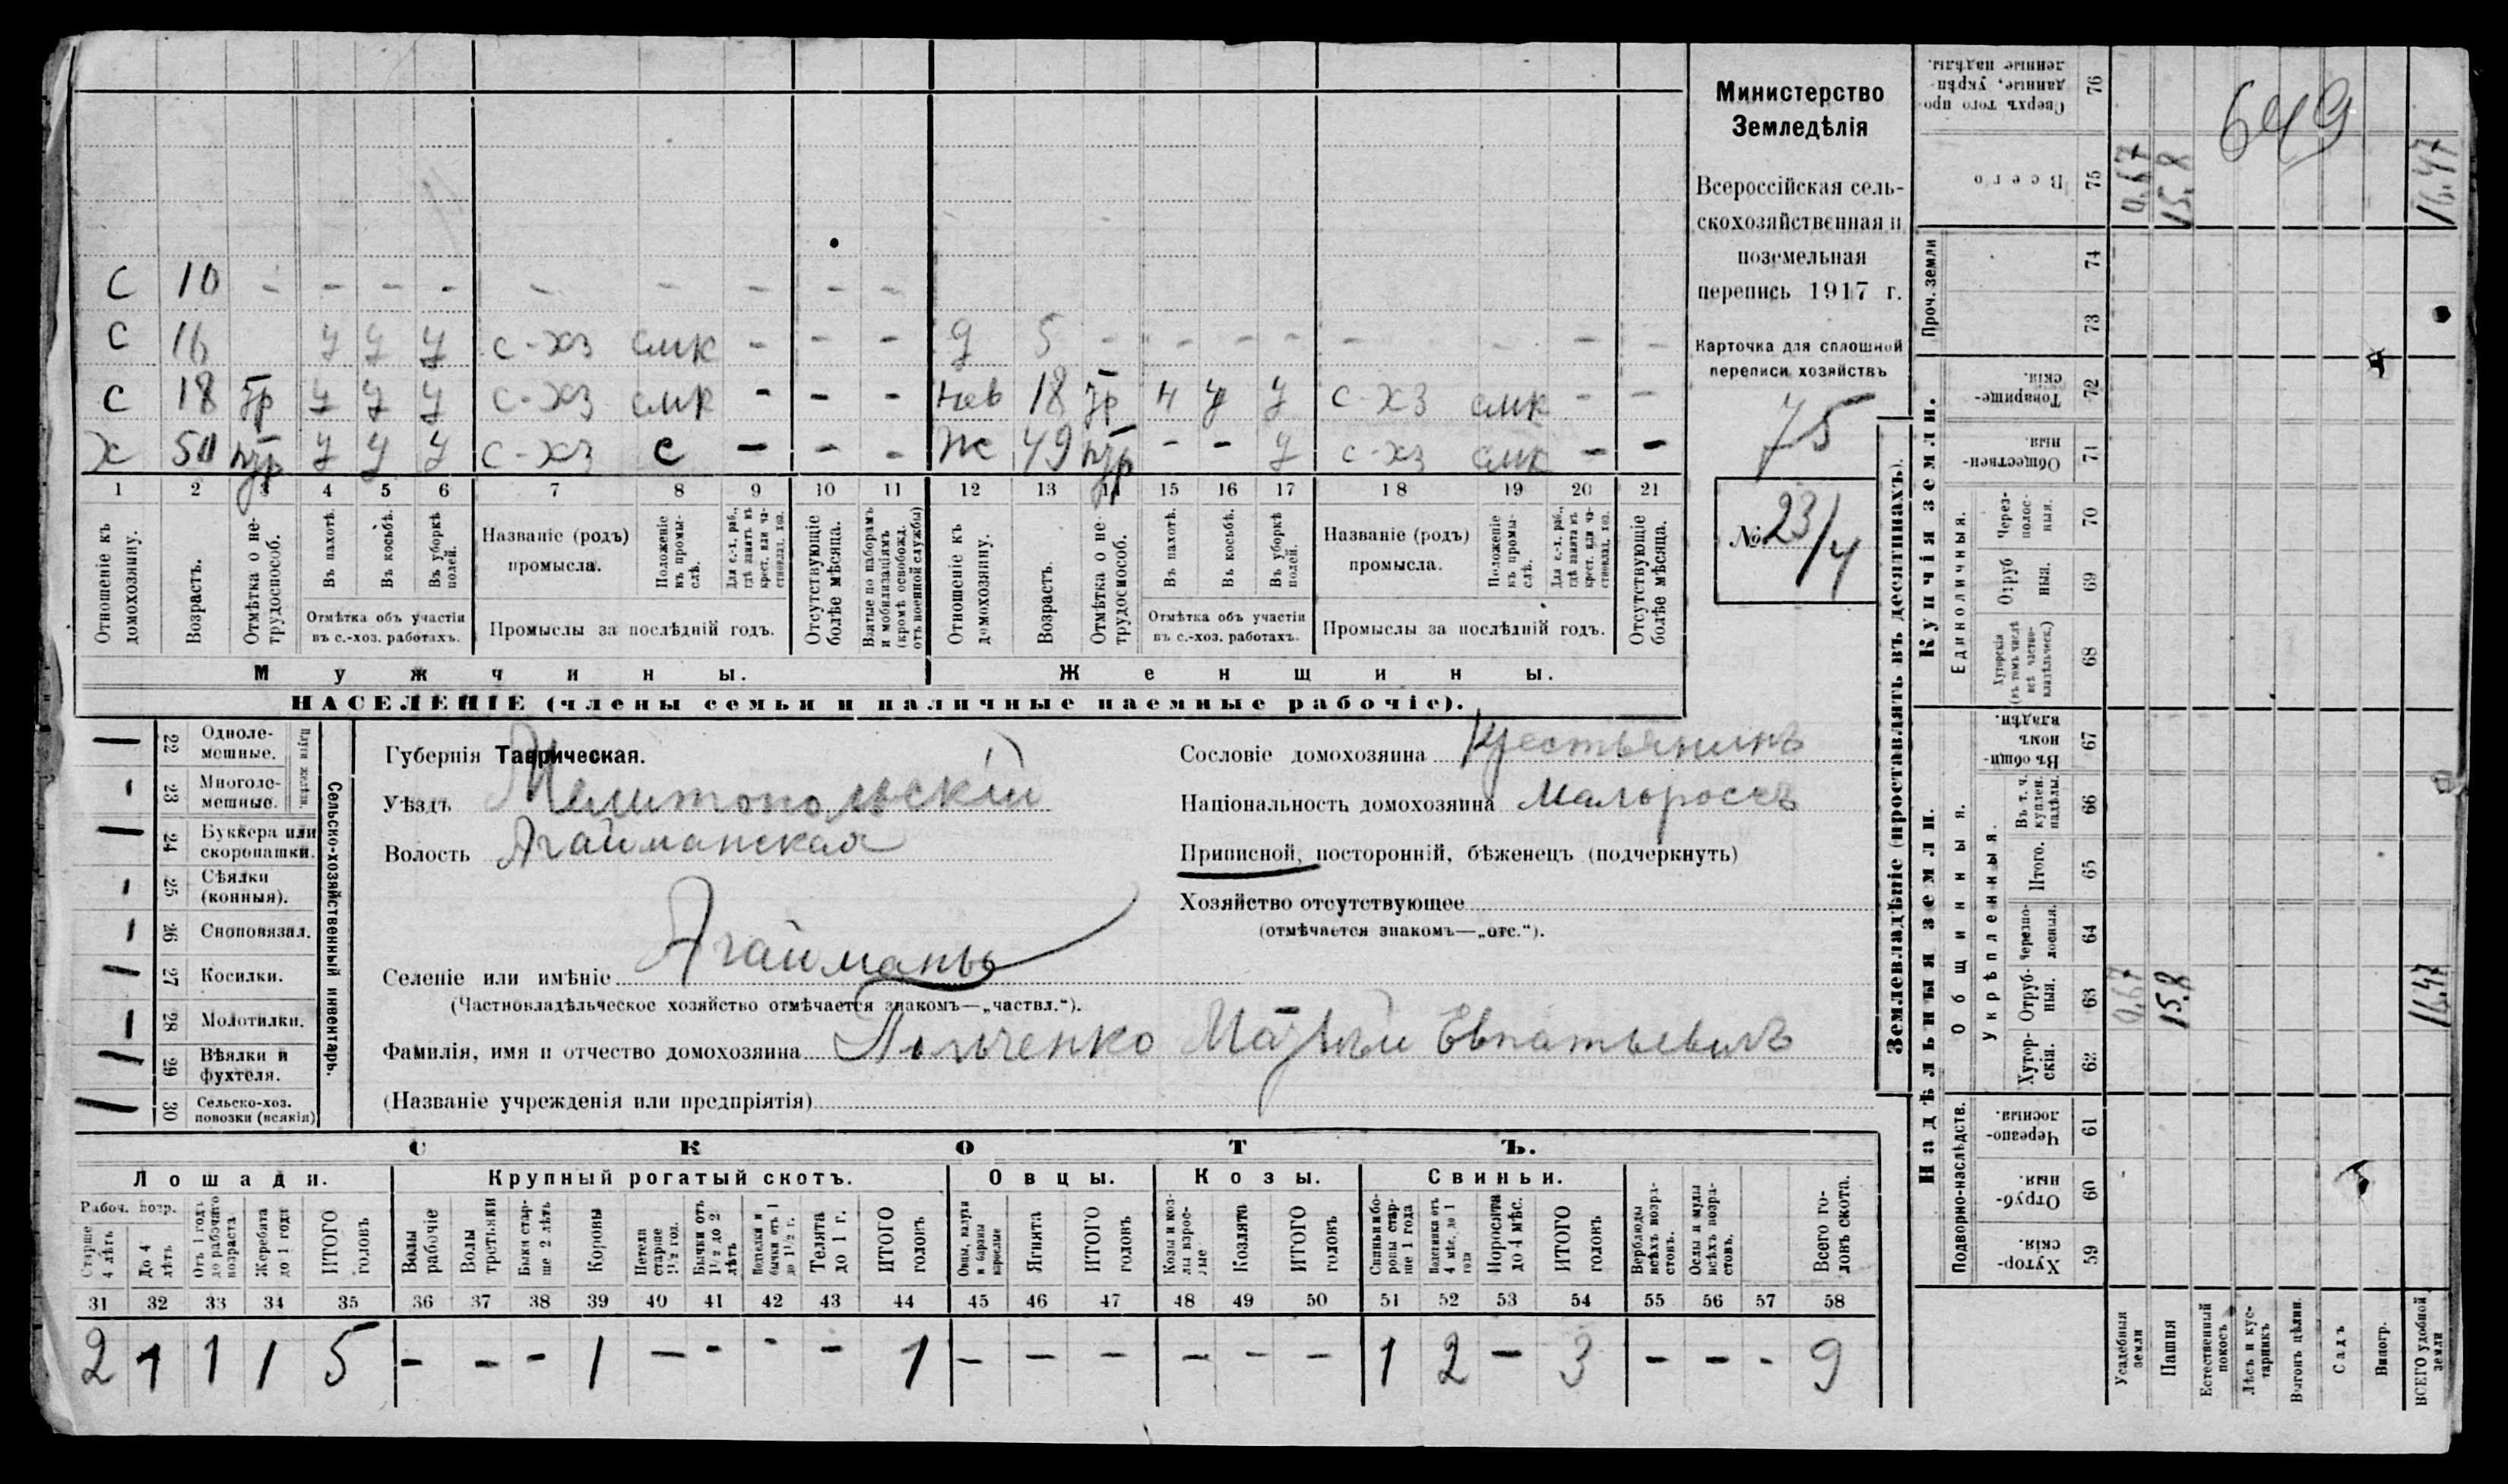 С 10 - - - - - - - - -
С 16 у у у с-хз смк - - - д 5 - - - - - - - -
С 18 гр у у у с-хз смк - - - нев 18 гр н у у с-хз смк - -
х 50 нгр у у у с-хз с - - - ж 49 нгр - - у с-хз смк - -
1 2 3 4 5 6 7 8 9 10 11 12 13 14 15 16 17 18 19 20 21
Отношеніе къ домохозяину.
Возрастъ.
Отмѣтка о нетрудоспособ.
Въ пахотѣ.
Въ косьбѣ.
Въ уборкѣ полей.
Отмѣтка объ участіи
въ с.-хоз. работахъ.
Названіе (родъ)
промысла.
Положеніе въ промыслѣ.
Для с.-х. раб., гдѣ занятъ въ крест. или частновлад. хоз.
Промыслы за послѣдній годъ.
Отсутствующіе болѣе мѣсяца.
Взятые по наборамъ и мобилизаціямъ (кромѣ освобожд. отъ военной службы)
Отношеніе къ домохозяину.
Возрастъ.
Отмѣтка о нетрудоспособ.
Въ пахотѣ.
Въ косьбѣ.
Въ уборкѣ полей.
Отмѣтка объ участіи
въ с.-хоз. работахъ.
Названіе (родъ)
промысла.
Положеніе въ промыслѣ.
Для с.-х. раб., гдѣ занята въ крест. или частновлад. хоз.
Промыслы за послѣдній годъ.
Отсутствующіе болѣе мѣсяца.
Мужчины.
Женщины.
НАСЕЛЕНІЕ (члены семьи и наличные наемные рабочіе).
Министерство
Земледѣлія
Всероссійская сель-
скохозяйственная и
поземельная
перепись 1917 г.
Карточка для сплошной
переписи хозяйствъ
75
№ 23/4
Сельско-хозяйственный инвентарь.
Плуги желѣзн.
— 22 Одноле-
мешные.
- 23 Многоле-
мешные.
— 24 Буккера или
скоропашки.
- 25 Сѣялки
(конныя).
- 26 Сноповязал.
— 27 Косилки.
- 28 Молотилки.
— 29 Вѣялки и
фухтеля.
— 30 Сельско-хоз.
повозки (всякія)
Губернія Таврическая.
Уѣздъ Мелитопольскій
Волость Агайманская
Селеніе или имѣніе Агайманы
(Частновладѣльческое хозяйство отмѣчается знакомъ—„частвл.“).
Фамилія, имя и отчество домохозяина Матвѣй Евпатьевичъ
(Названіе учрежденія или предпріятія)
Сословіе домохозяина Крестьянинъ
Національность домохозяина Малороссъ
Приписной, посторонній, бѣженецъ (подчеркнуть)
Хозяйство отсутствующее
(отмѣчается знакомъ—„отс.“).
СКОТЪ.
Лошади. Крупный рогатый скотъ. Овцы. Козы. Свиньи.
Рабоч. возр.
Старше 4 лѣтъ
До 4 лѣтъ
Отъ 1 года до рабочаго возраста
Жеребята до 1 года
ИТОГО головъ
Волы рабочіе
Волы третьяки
Быки старше 2 лѣтъ
Коровы
Нетели старше 1½ год.
Бычки отъ 1½ до 2 лѣтъ
Подтелки и бычки отъ 1 до 1½ г.
Телята до 1 г.
ИТОГО головъ
Овцы, валухи и бараны взрослые
Ягнята
ИТОГО головъ
Козы и козлы взрослые
Козлята
ИТОГО головъ
Свиньи боровы старше 1 года
Подсвинки отъ 4 мѣс. до 1 года
Поросята до 4 мѣс.
ИТОГО головъ
Верблюды всѣхъ возрастовъ.
Ослы и мулы всѣхъ возрастовъ.
Всего головъ скота.
31 32 33 34 35 36 37 38 39 40 41 42 43 44 45 46 47 48 49 50 51 52 53 54 55 56 57 58
2 1 1 1 5 - - - 1 - - - - 1 - - - - - - 1 2 - 3 - - - 9
Землевладѣніе (проставлять въ десятинахъ).
Надѣльныя земли.
Купчія земли.
Проч. земли
Подворно-наслѣдств.
Общинныя.
Укрѣпленныя.
Единоличныя.
Сверхъ того проданные, укрѣпленные надѣлы. 76
Всего 75 0.67 15.8 16.47
649
74
73
Товарищескія. 72
Общественныя. 71
Черезполосныя. 70
Отрубныя. 69
Хуторскія (въ томъ числѣ всѣ частновладѣльческ.) 68
Въ общинномъ владѣн. 67
Въ т. ч. куплен. надѣлы. 66
Итого. 65
Черезполосныя. 64
Отрубныя. 63 0.67 15.8 16.47
Хуторскія. 62
Черезполосныя. 61
Отрубныя. 60
Хуторскія. 59
Усадебныя земли
Пашня
Естественный покосъ
Лѣсъ и кустарникъ
Выгонъ цѣлин.
Садъ
Виногр.
ВСЕГО удобной земли